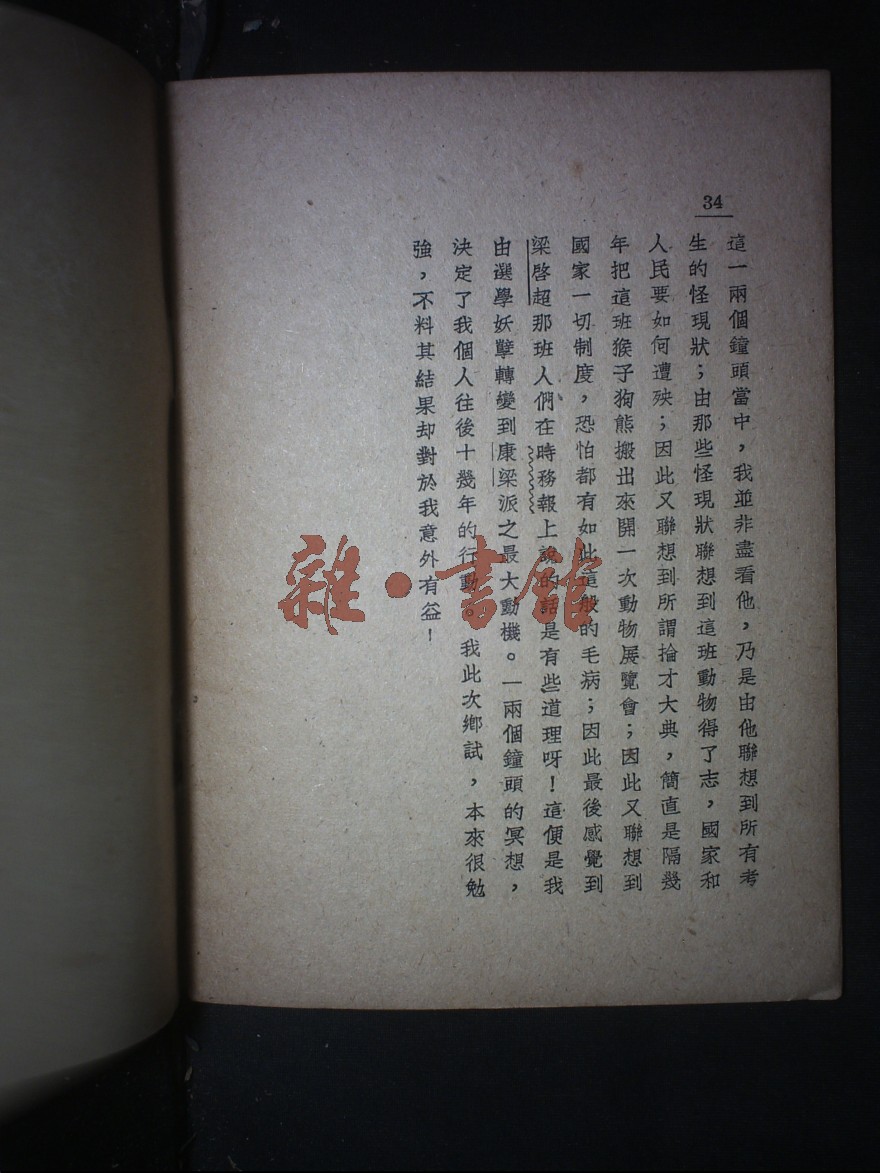 34
這一兩個鐘頭當中，我並非盡看他，乃是由他聯想到所有考
生的怪現狀；由那些怪現狀聯想到這班動物得了志，國家和
人民要如何遭殃；因此又聯想到所謂掄才大典，簡直是隔幾
年把這班猴子狗熊搬出來開一次動物展覽會；因此又聯想到
國家一切制度，恐怕都有如此這般的毛病；因此最後感覺到
梁啓超那班人們在時務報上說的話是有些道理呀！這便是我
由選學妖孽轉變到康梁派之最大動機。一兩個鐘頭的冥想，
決定了我個人往後十幾年的行動。我此次鄉試，本來很勉
強，不料其結果却對於我意外有益！
雜·書館